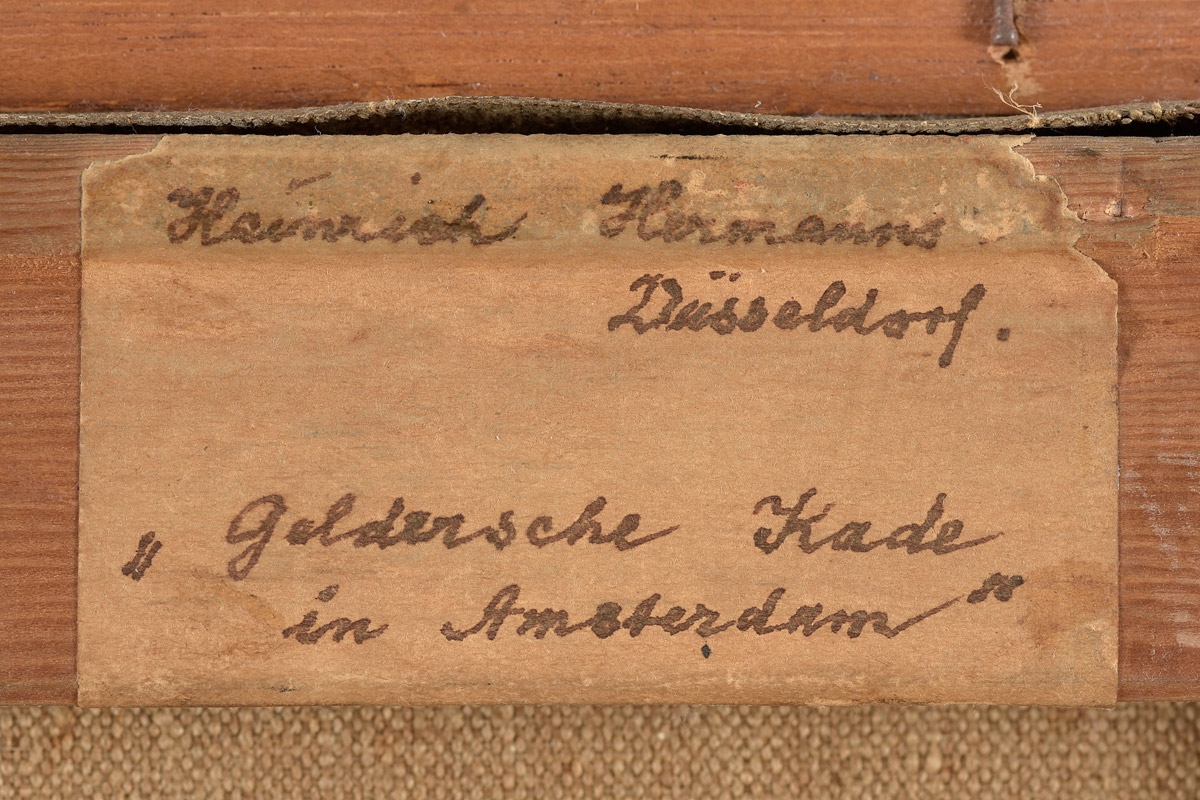 Heinrich Hermanns.
Düsseldorf.
„ Geldersche Kade
in Amsterdam "